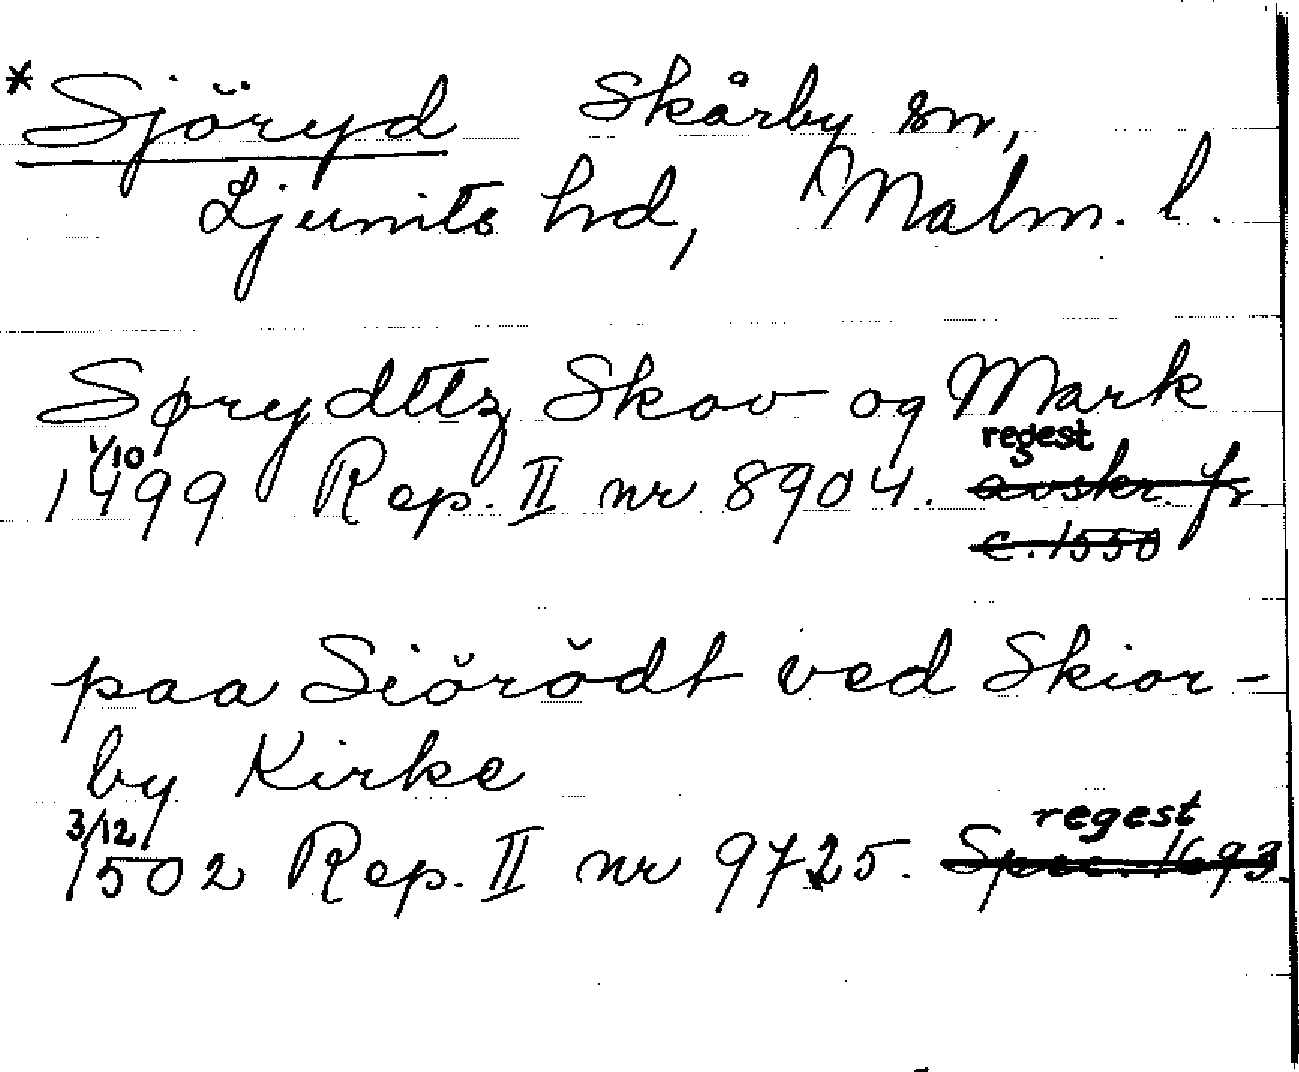 * Sjöryd Skårby sn,
Ljunits hd, Malm. l.
Sørydttz Skov og Mark
1/10 regest
1499 Rep. II nr 8904. avskr. fr
c. 1550
paa Siörödt ved Skior-
by Kirke
3/12 regest
1502 Rep. II nr 9725. Spec. 1693.